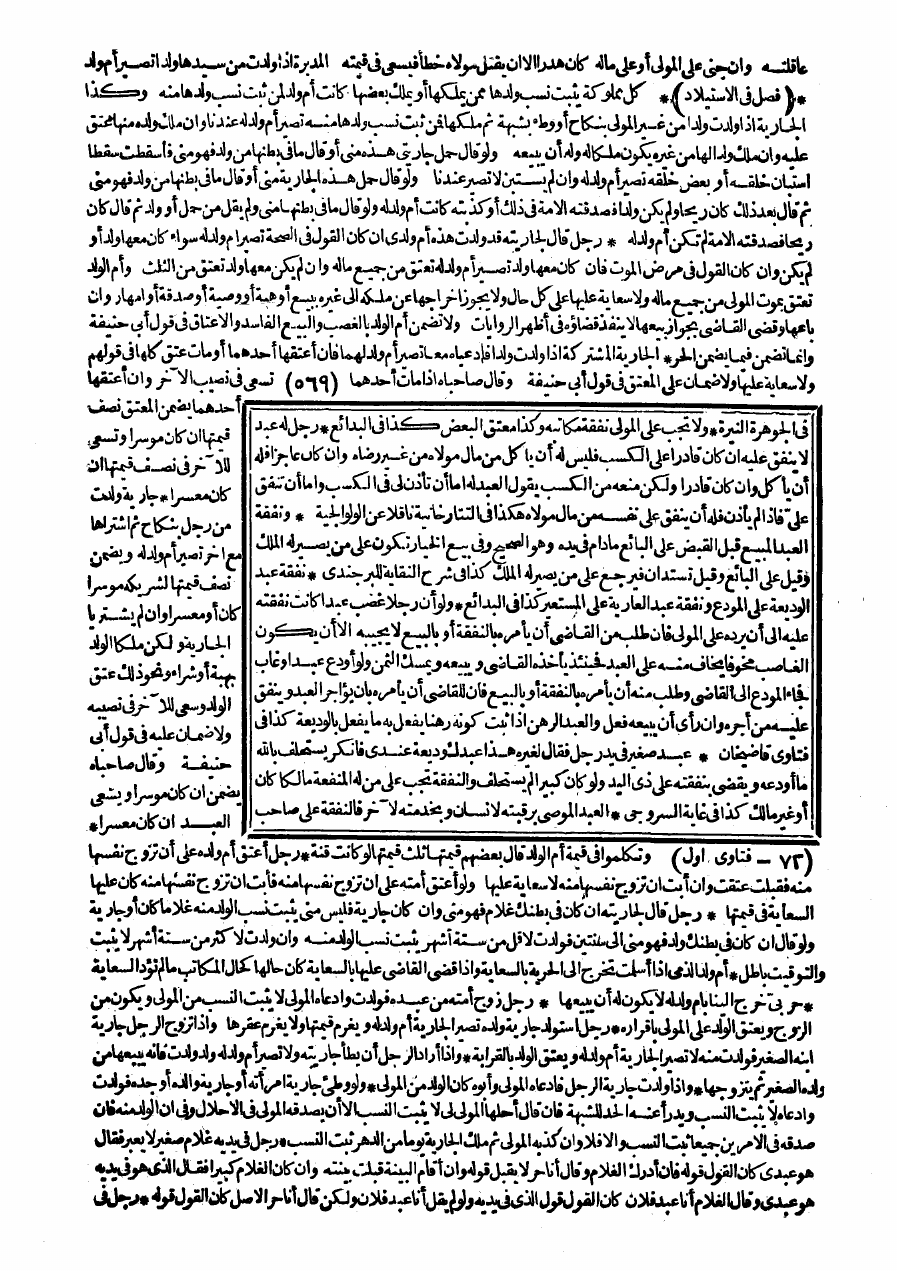 عاقلته وان جنى على المولى أو على ماله كان هدرا الا ان يقتل مولاه خطأ فيسعى في قيمته المدبرة اذا ولدت من سيدها ولدا تصير أم ولد
*(فصل في الاستيلاد)* كل مملوكة يثبت نسب ولدها ممن يملكها أو يملك بعضها كانت أم ولد لمن ثبت نسب ولدها منه وكذا
الجارية اذا ولدت ولدا من غير المولى بنكاح أو وطء بشبهة ثم ملكها فمن ثبت نسب ولدها منه تصير أم ولد له عندنا وان ملك ولده منها عتق
عليه وان ملك ولدا لها من غيره يكون ملكا له وله أن يبيعه ولو قال حمل جاريتي هذه مني أو قال ما في بطنها من ولد فهو مني فأسقطت سقطا
استبان خلقه أو بعض خلقه تصير أم ولد له وان لم يستبن لا تصير عندنا ولو قال حمل هذه الجارية مني أو قال ما في بطنها من ولد فهو مني
ثم قال بعد ذلك كان ريحا ولم يكن ولدا فصدقته الامة في ذلك أو كذبته كانت أم ولد له ولو قال ما في بطنها مني ولم يقل من حمل أو ولد ثم قال كان
ريحا فصدقته الامة لم تكن أم ولد له * رجل قال لجاريته قد ولدت هذه أم ولدى ان كان القول في الصحة تصير أم ولد له سواء كان معها ولد أو
لم يكن وان كان القول في مرض الموت فان كان معها ولد تصير أم ولد له تعتق من جميع ماله وان لم يكن معها ولد تعتق من الثلث وأم الولد
تعتق بموت المولى من جميع ماله ولا سعاية عليها على كل حال ولا يجوز اخراجها عن ملكه الى غيره ببيع أو هبة أو وصية أو صدقة أو امهار وان
باعها وقضى القاضى بجواز بيعها لا ينفذ قضاؤه في أظهر الروايات ولا تضمن أم الولد بالغصب والبيع الفاسد والاعتاق في قول أبي حنيفة
وانما تضمن فيما يضمن الحر * الجارية المشتركة اذا ولدت ولدا فادعياه معا تصير أم ولد لهما فأن أعتقها أحدهما أو مات عتق كلها في قولهم
ولا سعاية عليها ولا ضمان على المعتق في قول أبي حنيفة وقال صاحباه اذا مات أحدهما (٥٦٩) تسعى في نصيب الآخر وان أعتقها
أحدهما يضمن المعتق نصف
قيمتها ان كان موسرا وتسعى
للآخر في نصف قيمتها ان
كان معسرا * جارية ولدت
من رجل بنكاح ثم اشتراها
مع آخر تصير أم ولد له ويضمن
نصف قيمتها لشريكه موسرا
كان أو معسرا وان لم يشتريا
الجارية ولكن ملكا الولد
بهبة أو شراء ونحو ذلك عتق
الولد وسعى للآخر في نصيبه
ولا ضمان عليه في قول أبي
حنيفة وقال صاحباه
يضمن ان كان موسرا ويسعى
العبد ان كان معسرا *
في الجوهرة النيرة * ولا تجب على المولى نفقة مكاتبه وكذا معتق البعض كذا في البدائع * رجل له عبد
لا ينفق عليه ان كان قادرا على الكسب فليس له أن يأكل من مال مولاه من غير رضاه وان كان عاجزا فله
أن يأكل وان كان قادرا ولكن منعه من الكسب يقول العبد له اما أن تأذن لى في الكسب واما أن تنفق
على فاذا لم يأذن فله أن ينفق على نفسه من مال مولاه هكذا في التتارخانية ناقلا عن الولوالجية * ونفقة
العبد المبيع قبل القبض على البائع مادام في يده وهو الصحيح وفي بيع الخيار تكون على من يصير له الملك
وقيل على البائع وقيل تستدان فيرجع على من يصير له الملك كذا في شرح النقاية للبرجندى * نفقة عبد
الوديعة على المودع ونفقة عبد العارية على المستعير كذا في البدائع * ولو أن رجلا غصب عبدا كانت نفقته
عليه الى أن يرده على المولى فان طلب من القاضى أن يأمره بالنفقة أو بالبيع لا يجيبه الا أن يكون
الغاصب مخوفا يخاف منه على العبد فحينئذ يأخذه القاضى ويبيعه ويمسك الثمن ولو أودع عبدا وغاب
فجاء المودع الى القاضى وطلب منه أن يأمره بالنفقة أو بالبيع فان للقاضى أن يأمره بان يؤاجر العبد وينفق
عليه من أجره وان رأى أن يبيعه فعل والعبد الرهن اذا ثبت كونه رهنا يفعل به ما يفعل بالوديعة كذا في
فتاوى قاضيخان * عبد صغير في يد رجل فقال لغيره هذا عبدك وديعة عندى فانكر يستحلف بالله
ما أودعه ويقضى بنفقته على ذى اليد ولو كان كبيرا لم يستحلف والنفقة تجب على من له المنفعة مالكا كان
أو غير مالك كذا في غاية السروجى * العبد الموصى برقبته لانسان وبخدمته لآخر فالنفقة على صاحب
(٧٢ - فتاوى اول) وتكلموا في قيمة أم الولد قال بعضهم قيمتها ثلث قيمتها لو كانت قنة * رجل أعتق أم ولده على أن تزوج نفسها
منه فقبلت عتقت وان أبت ان تزوج نفسها منه لا سعاية عليها ولو أعتق أمته على ان تزوج نفسها منه فأبت ان تزوج نفسها منه كان عليها
السعاية في قيمتها * رجل قال لجاريته ان كان في بطنك غلام فهو مني وان كان جارية فليس مني يثبت نسب الولد منه غلاما كان أو جارية
ولو قال ان كان في بطنك ولد فهو مني الى سنتين فولدت لاقل من ستة أشهر يثبت نسب الولد منه وان ولدت لاكثر من ستة أشهر لا يثبت
والتوقيت باطل * أم ولد الذمى اذا أسلمت تخرج الى الحرية بالسعاية واذا قضى القاضى عليها بالسعاية كان حالها كحال المكاتب مالم تؤد السعاية
* حربي خرج الينا بام ولد له لا يكون له أن يبيعها * رجل زوج أمته من عبده فولدت وادعاه المولى لا يثبت النسب من المولى ويكون من
الزوج ويعتق الولد على المولى باقراره * رجل استولد جارية ولده تصير الجارية أم ولد له ويغرم قيمتها ولا يغرم عقرها واذا تزوج الرجل جارية
ابنه الصغير فولدت منه لا تصير الجارية أم ولد له ويعتق الولد بالقرابة * واذا أراد الرجل أن يطأ جاريته ولا تصير أم ولد له ولو ولدت فانه يبيعها من
ولده الصغير ثم يتزوجها * واذا ولدت جارية الرجل فادعاه المولى وأبوه كان الولد من المولى * ولو وطئ جارية امرأته أو جارية والده أو جده فولدت
وادعاه لا يثبت النسب ويدرأ عنه الحد للشبهة فان قال أحلها المولى لى لا يثبت النسب الا أن يصدقه المولى في الاحلال وفي ان الولد منه فان
صدقه في الامرين جميعا ثبت النسب والا فلا وان كذبه المولى ثم ملك الجارية يوما من الدهر ثبت النسب * رجل في يديه غلام صغير لا يعبر فقال
هو عبدى كان القول قوله فان أدرك الغلام وقال أنا حر لا يقبل قوله وان أقام البينة قبلت بينته وان كان الغلام كبيرا فقال الذى هو في يديه
هو عبدى وقال الغلام أنا عبد فلان كان القول قول الذى في يديه ولو لم يقل أنا عبد فلان ولكن قال أنا حر الاصل كان القول قوله * رجل في